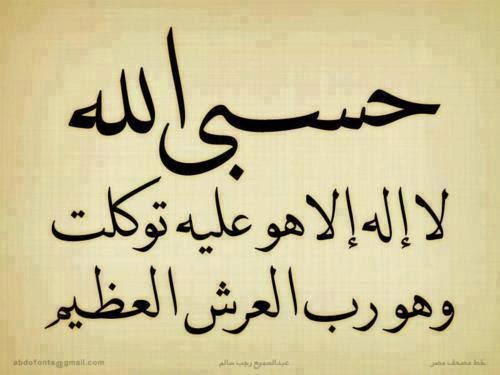 حسبى الله
لا إله إلا هو عليه توكلت
وهو رب العرش العظيم
خط مصحف مصر
عبدالسميع رجب سالم
abdofonts@gmail.com